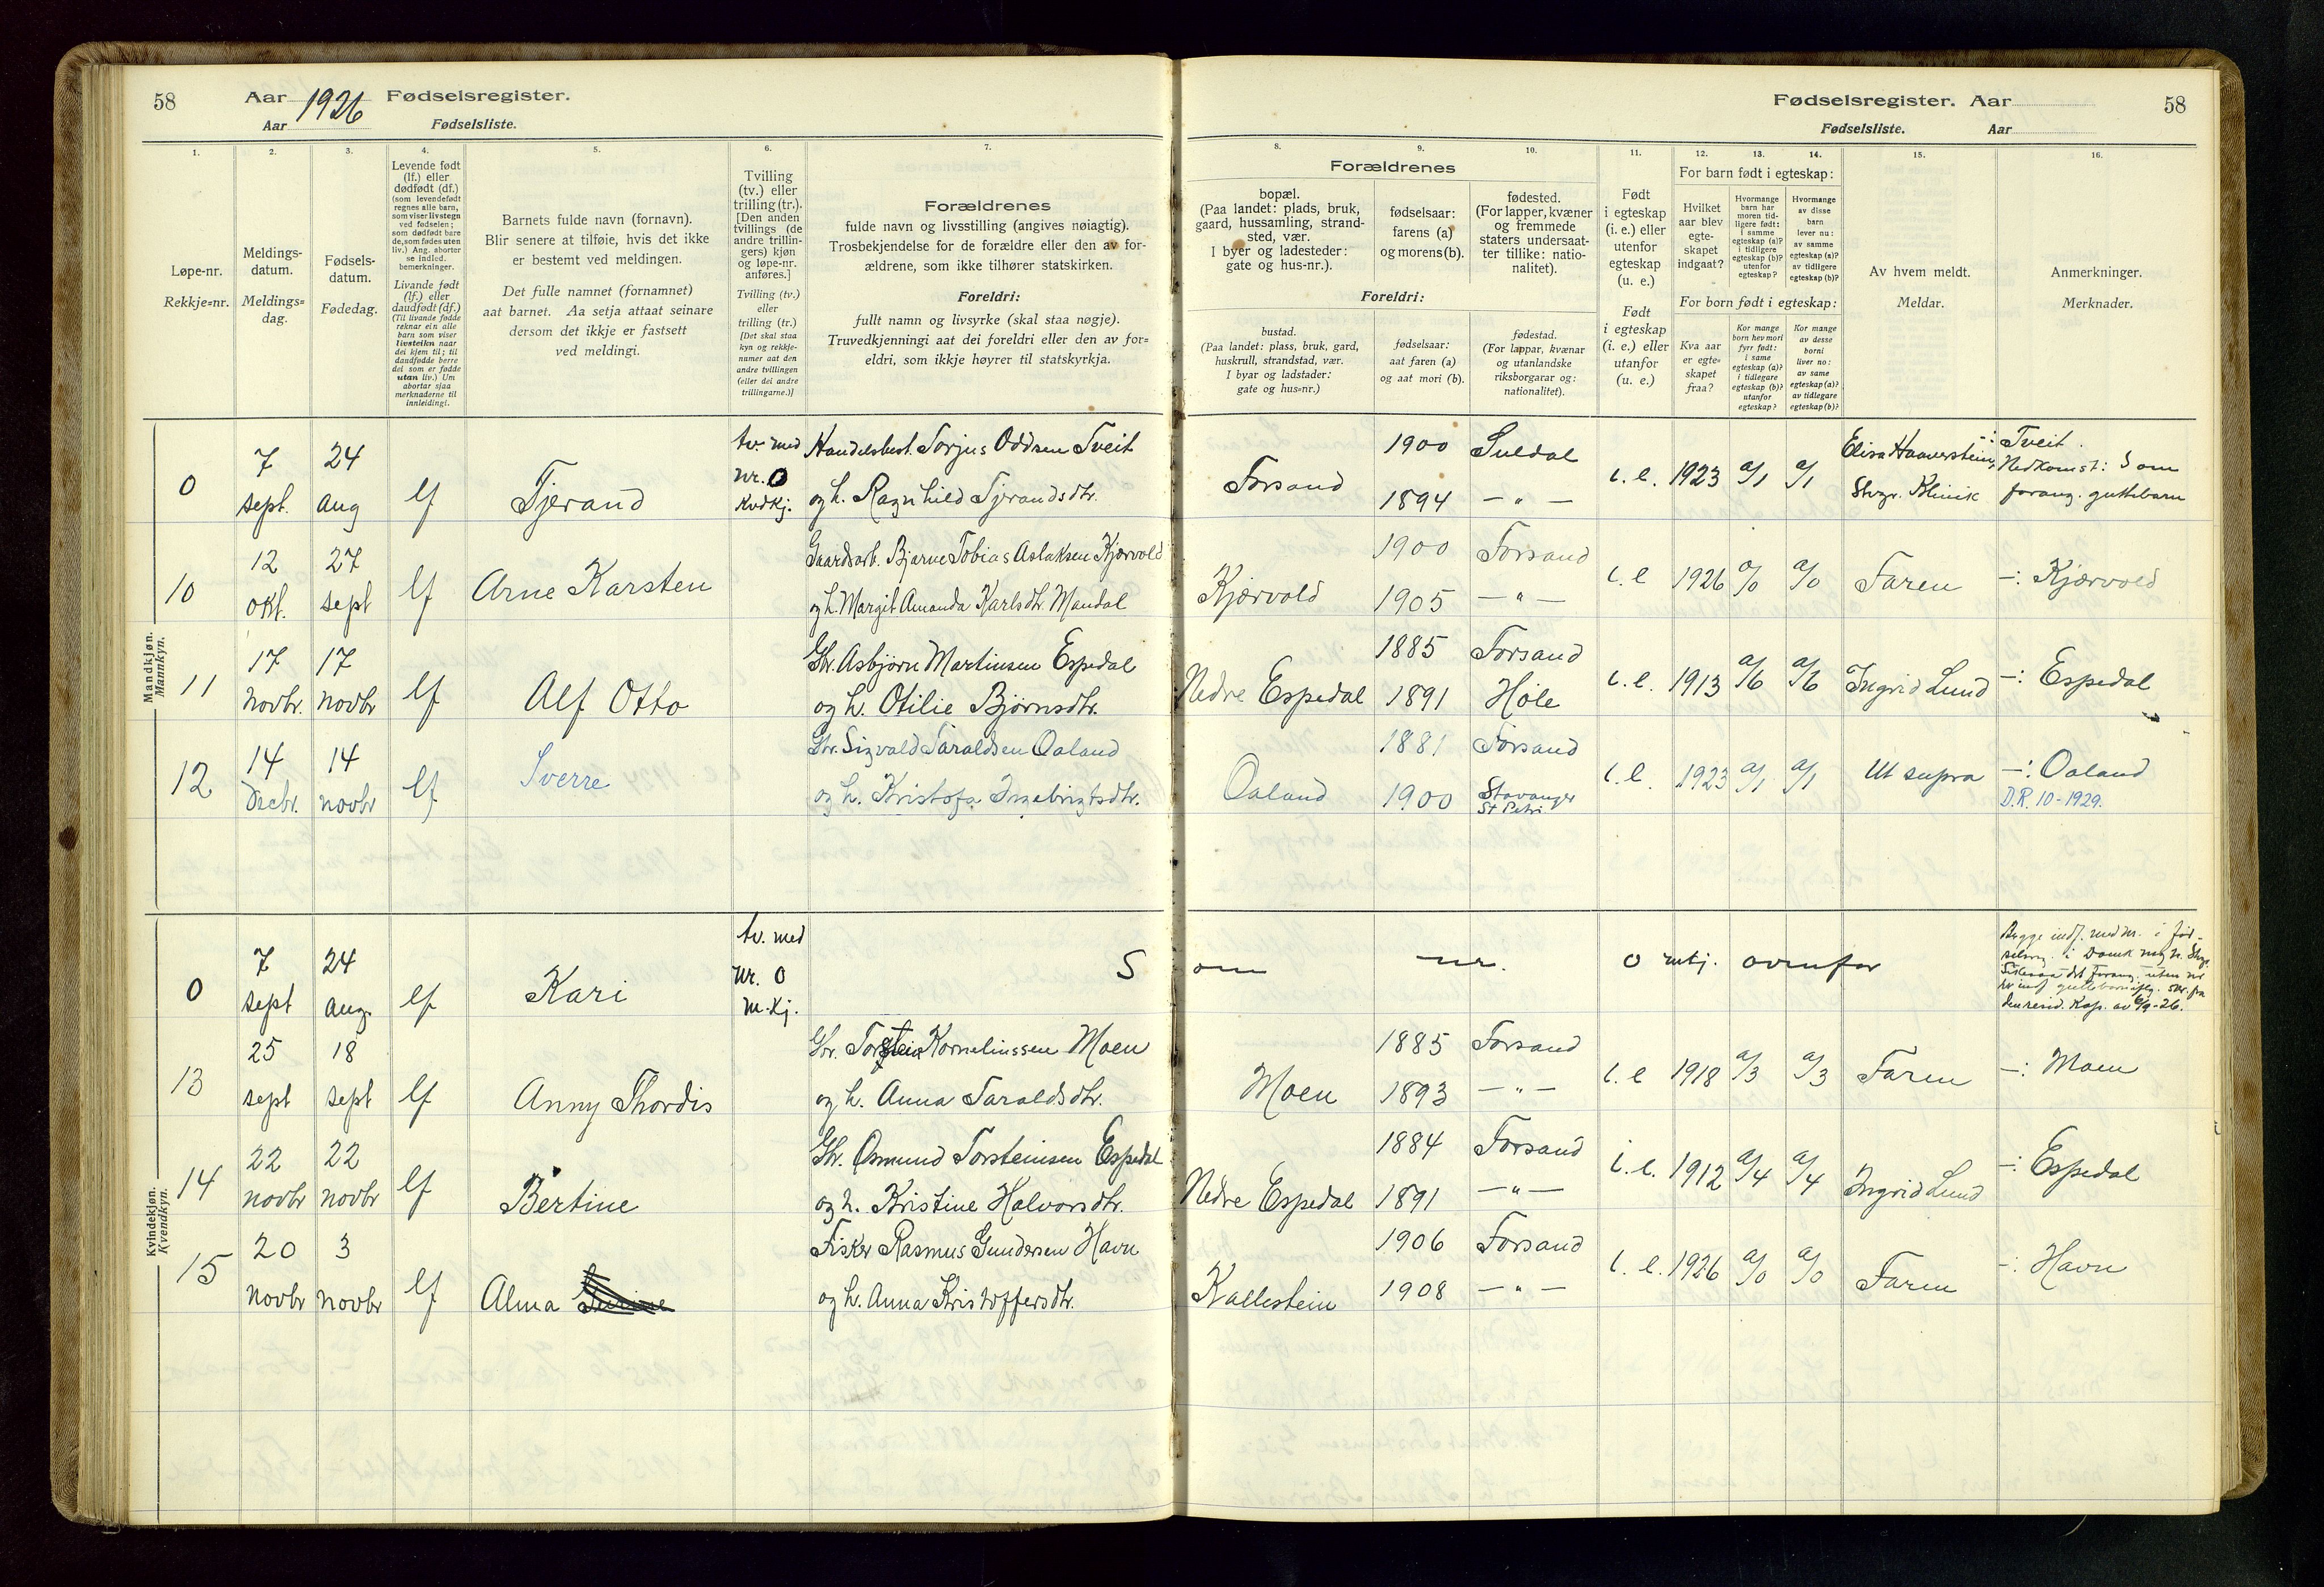 58 Aar 1926 Fødselsregister.
Aar Fødselsliste.
Fødselsregister. Aar 58
Fødselsliste. Aar
1. 2. 3. 4. 5. 6. 7. 8. 9. 10. 11. 12. 13. 14. 15. 16.
Løpe-nr.
Rekkje=nr.
Meldings-
datum.
Meldings=
dag.
Fødsels-
datum.
Fødedag.
Levende født
(lf.) eller
dødfødt (df.)
(som levendefødt
regnes alle barn,
som viser livstegn
ved fødselen;
som dødfødt bare
de, som fødes uten
liv.) Ang. aborter
se indled.
bemerkninger.
Livande født
(lf.) eller
daudfødt (df.)
(Til livande fødde
reknar ein alle
barn som viser
livsteikn naar
dei kjem til; til
daudfødde berre
dei som er fødde
utan liv.) Um
abortar sjaa
merknaderne til
innleidingi.
Barnets fulde navn (fornavn).
Blir senere at tilføie, hvis det ikke
er bestemt ved meldingen.
Det fulle namnet (fornamnet)
aat barnet. Aa setja attaat seinare
dersom det ikkje er fastsett
ved meldingi.
Tvilling
(tv.) eller
trilling (tr.).
[Den anden
tvillings (de
andre trillin-
gers) kjøn
og løpe-nr.
anføres.]
Tvilling (tv.)
eller
trilling (tr.)
[Det skal staa
kyn og rekkje-
numer aat den
andre tvillingen
(eller dei andre
trillingarne.)]
Forældrenes
fulde navn og livsstilling (angives nøiagtig).
Trosbekjendelse for de forældre eller den av for-
ældrene, som ikke tilhører statskirken.
Foreldri:
fullt namn og livsyrke (skal staa nøgje).
Truvedkjenningi aat dei foreldri eller den av for=
eldri, som ikkje høyrer til statskyrkja.
Forældrenes
bopæl.
(Paa landet: plads, bruk,
gaard, hussamling, strand-
sted, vær.
I byer og ladesteder:
gate og hus-nr.).
Foreldri:
bustad.
(Paa landet: plass, bruk, gard,
huskrull, strandstad, vær.
I byar og ladstader:
gate og hus=nr.)
fødselsaar:
farens (a)
og morens (b).
fødselsaar:
aat faren (a)
og aat mori (b).
fødested.
(For lapper, kvæner
og fremmede
staters undersaat-
ter tillike: natio-
nalitet).
fødestad.
(For lappar, kvænar
og utanlandske
riksborgarar og:
nationalitet).
Født
i egteskap
(i. e.) eller
utenfor
egteskap
(u. e.)
Født
i egteskap
(i. e.) eller
utanfor
(u. e.)
For barn født i egteskap:
Hvilket
aar blev
egte-
skapet
indgaat?
Hvormange
barn har
moren tid-
ligere født:
i samme
egteskap (a)?
i tidligere
egteskap (b)?
utenfor
egteskap?
Hvormange
av disse
barn
lever nu:
av samme
egteskap (a)?
av tidligere
egteskap (b)?
For born født i egteskap:
Kva aar
er egte=
skapet
fraa?
Kor mange
born hev mori
fyrr født:
i same
egteskap (a)?
i tidlegare
egteskap (b)?
utanfor
egteskap?
Kor mange
av desse
borni
liver no:
av same
egteskap (a)?
av tidlegare
egteskap (b)?
Av hvem meldt.
Meldar.
Anmerkninger.
Merknader.
Mandkjøn.
Mannkyn.
0 7 sept. 24 aug lf Tjerand tv. med nr. 0 kvdkj.
Handelsbest. Torjus Oddsen Tveit
og h. Ragnhild Tjerandsdtr.
Forsand 1900 Suldal
1894 — " —
i. e. 1923 a/1 a/1 Elisa Haaverstein, Stvgr. Klinik
—: Tveit.
Nedkomst: Som
forang. guttebarn
10 12 okt. 27 sept lf Arne Karsten
Gaardsarb. Bjarne Tobias Aslaksen Kjørvold
og h. Margit Amanda Karlsdtr. Mandal
Kjørvold 1900 Forsand
1905 — " —
i. e 1926 a/0 a/0 Faren —: Kjørvold
11 17 Novbr. 17 novbr lf Alf Otto
Gbr. Asbjørn Martinsen Espedal
og h. Otilie Bjørnsdtr.
Nedre Espedal 1885 Forsand
1891 Høle
i. e. 1913 a/6 a/6 Ingrid Lund —: Espedal
12 14 Decbr. 14 novbr lf Sverre
Gbr. Sigvald Taraldsen Oaland
og h. Kristofa Ingebrigtsdtr.
Oaland 1881 Forsand
1900 Stavanger
St Petri
i. e. 1923 a/1 a/1 Ut supra —: Oaland
D.R. 10-1929.
Kvindekjøn.
Kvendkyn.
0 7 sept 24 aug. lf Kari tv. med nr. 0 m.kj.
Som nr. 0 mkj. ovenfor
13 25 sept 18 sept lf Anny Thordis
Gbr. Torstein Korneliussen Moen
og h. Anna Taraldsdtr.
Moen 1885 Forsand
1893 — " —
i. e 1918 a/3 a/3 Faren —: Moen
14 22 novbr 22 novbr lf Bertine
Gbr. Osmund Torsteinsen Espedal
og h. Kristine Halvorsdtr.
Nedre Espedal 1884 Forsand
1891 — " —
i. e. 1912 a/4 a/4 Ingrid Lund —: Espedal
15 20 novbr 3 novbr lf Alma
Fisker Rasmus Gundersen Havn
og h. Anna Kristoffersdtr.
Kallestein 1906 Forsand
1908 — " —
i. e. 1926 a/0 a/0 Faren —: Havn